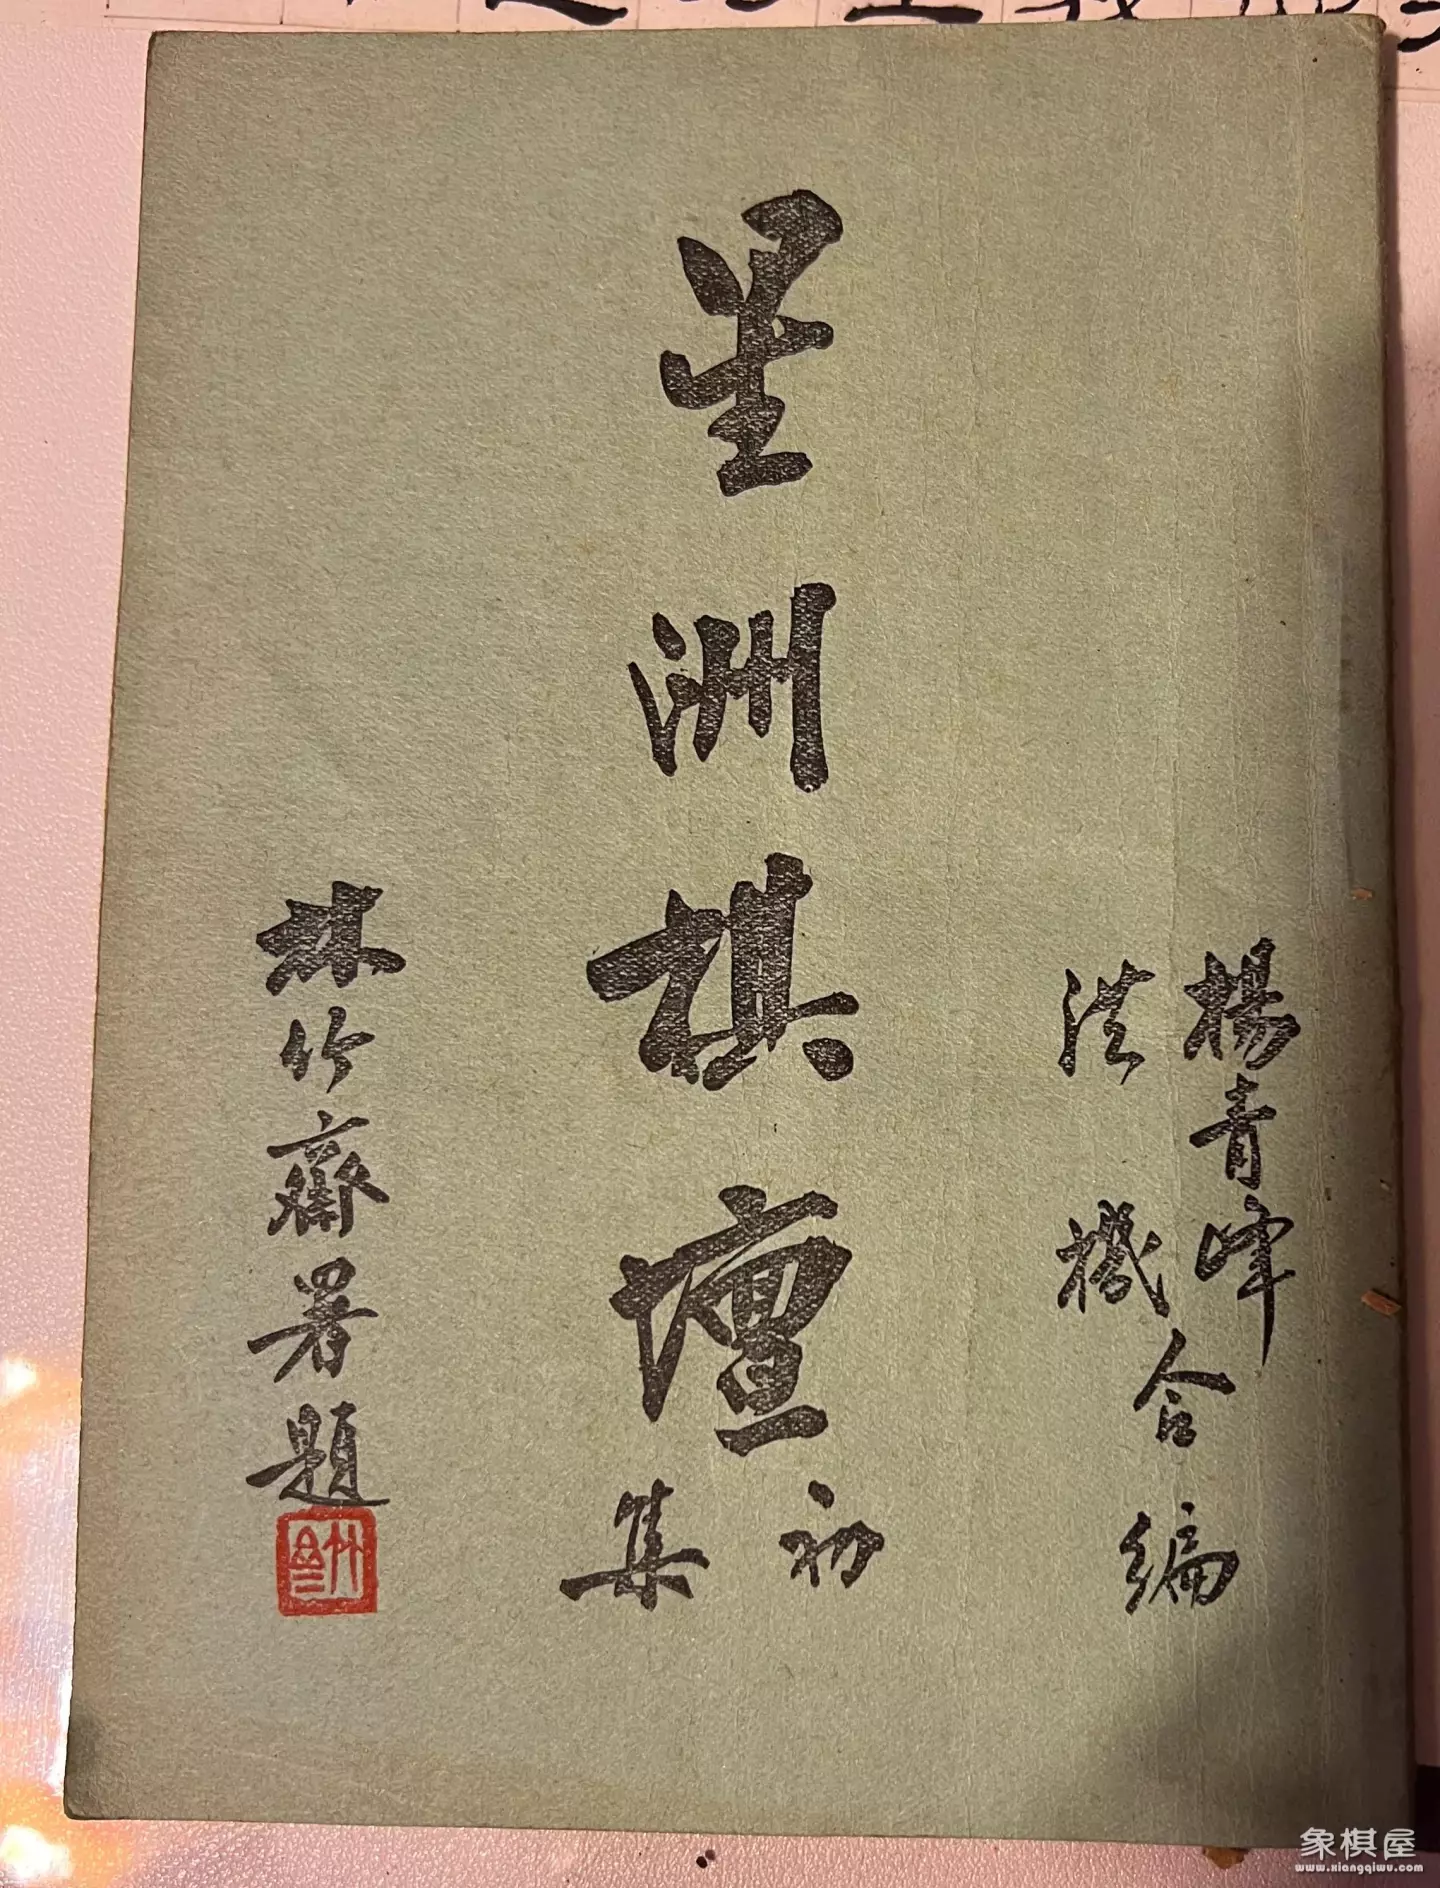 楊青峰
洪機合編
星洲棋壇
初集
林竹齋署題
象棋屋
www.xiangqiwu.com